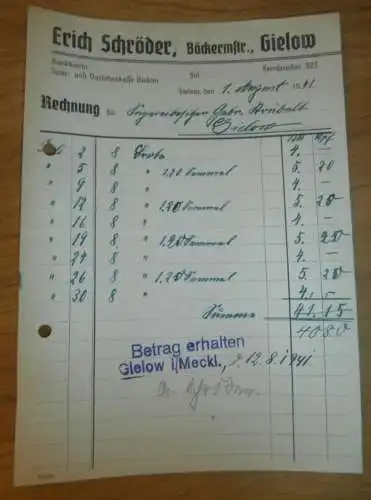 Erich Schröder, Bäckermstr., Gielow
Bankkonto:
Spar- und Darlehnskasse Gielow
Fernsprecher 323
Gielow, den 1. August 1941.
Rechnung für Sägereibesitzer Gebr. Strübelt
Gielow
2 8 Brote 4. -
" 5 8 " 1,20 Semmel 5. 20
" 9 8 " 4. -
" 12 8 " 1.20 Semmel 5. 20
" 16 8 " 4. -
" 19 8 " 1.20 Semmel 5. 20
" 24 8 " 4. -
" 26 8 " 1.20 Semmel 5. 20
" 30 8 " 4. -
Summa 41.15
40 80
Betrag erhalten
Gielow i/Meckl., d. 12.8.1941.
E. Schröder.